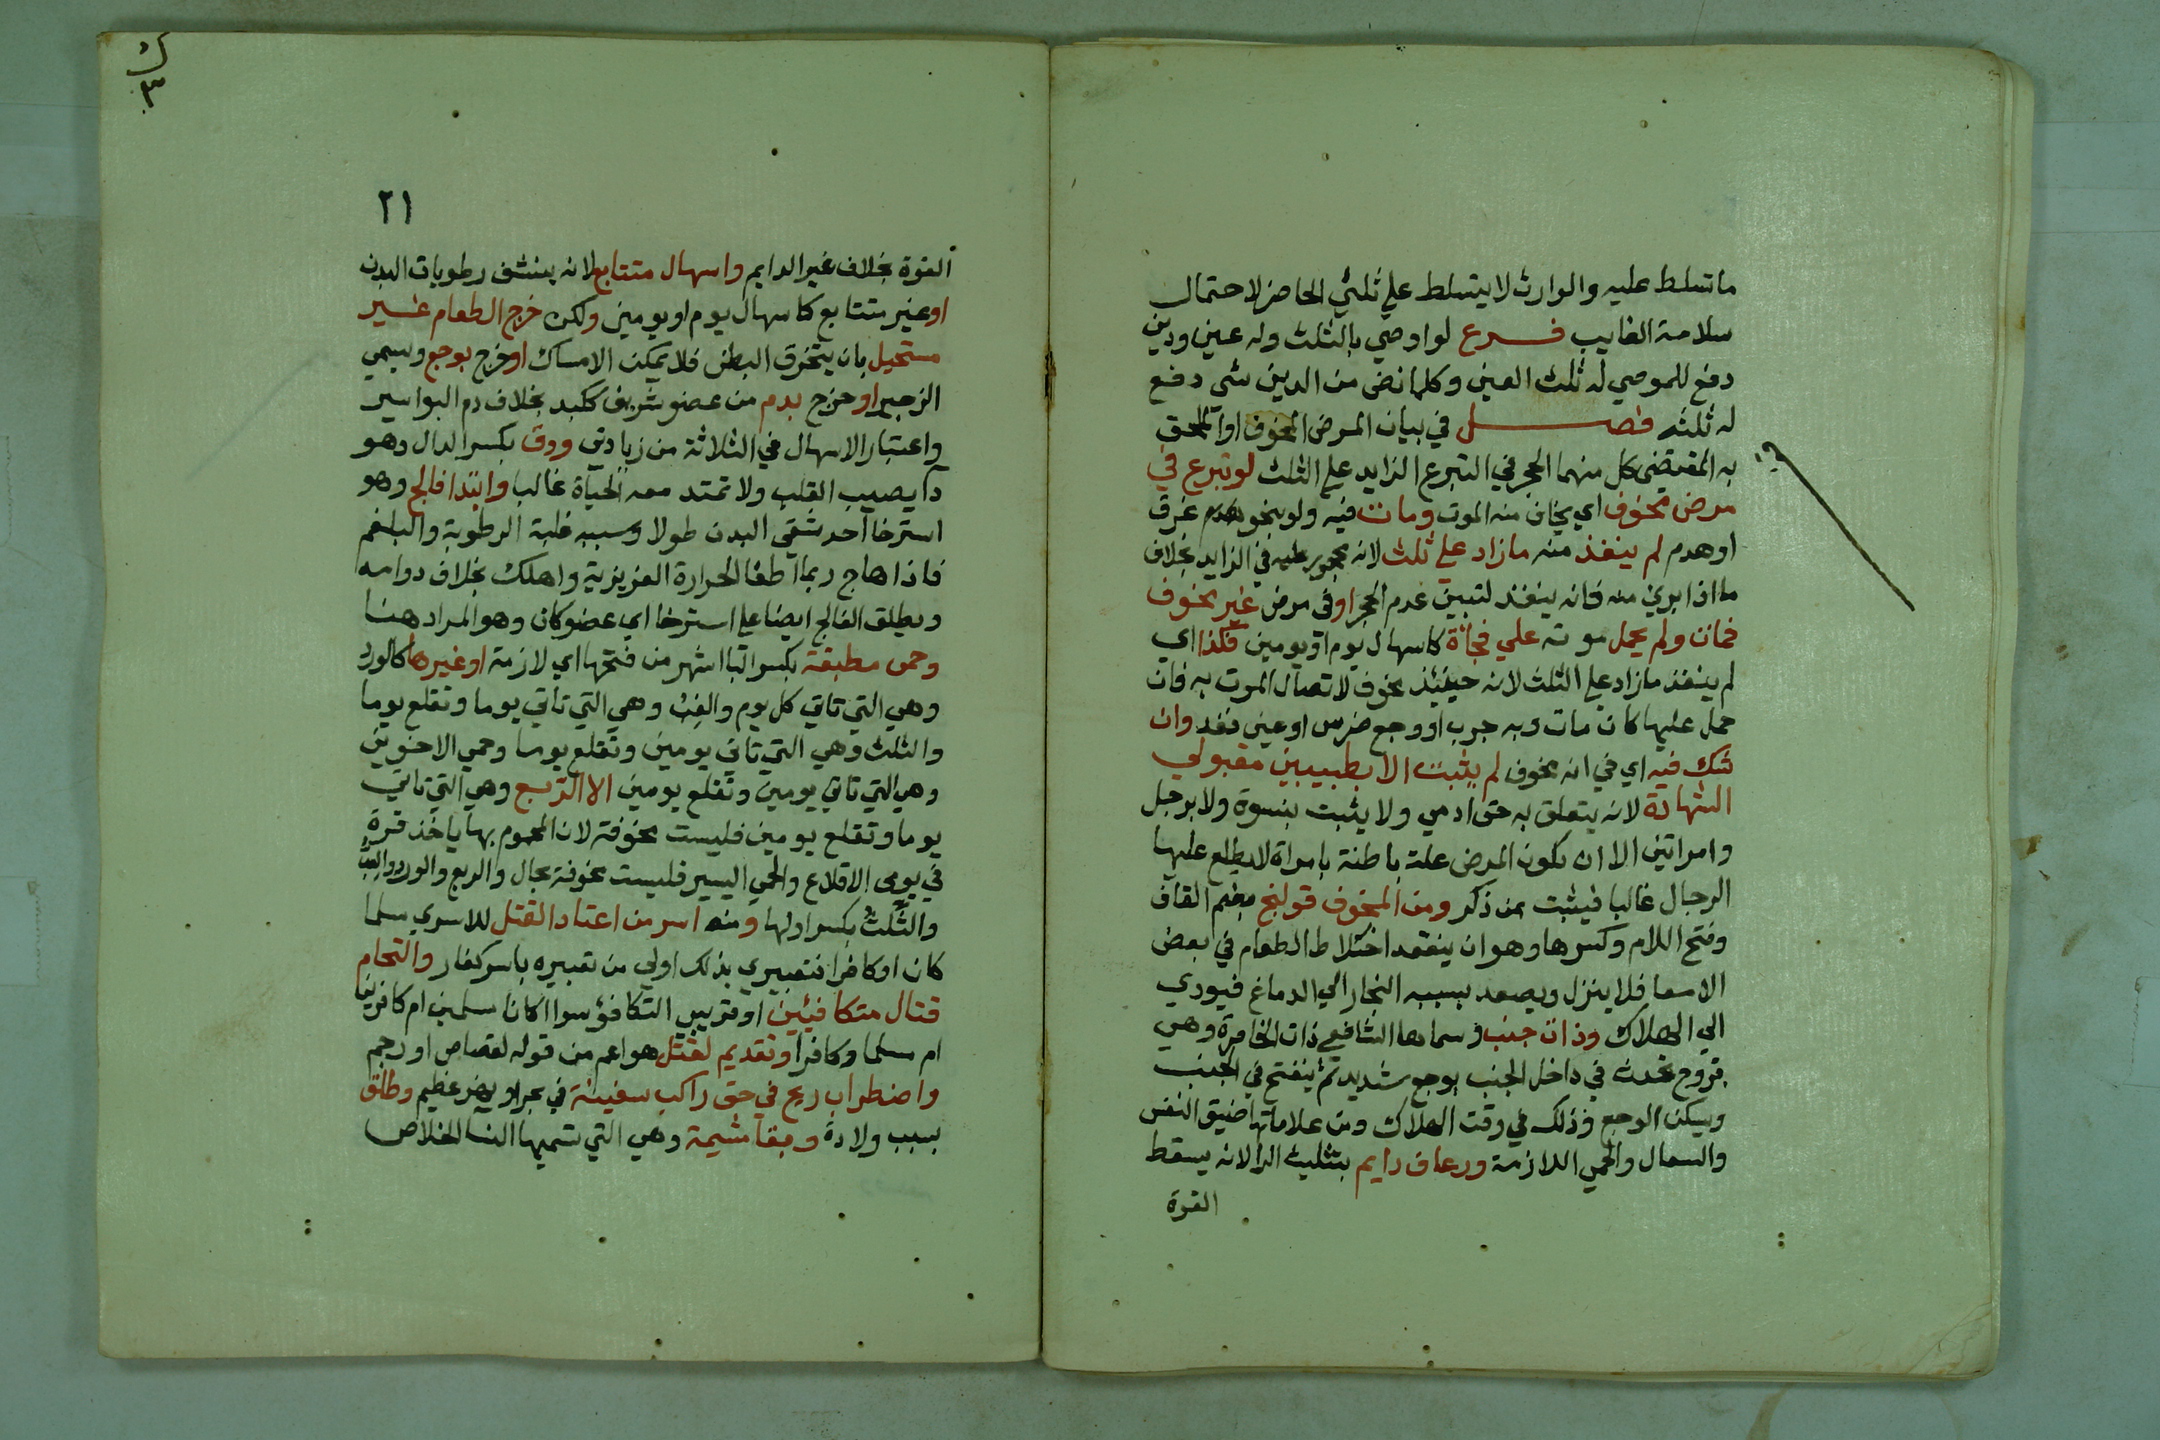 ماتسلط عليه والوارث لا يتسلط علي ثلثي الحاضر لاحتمال
سلامة الغايب فرع لو اوصي بالثلث وله عين ودين
دفع للموصي له ثلث العين وكلما نض من الدين شي دفع
له ثلثه فصل في بيان المرض المخوف او الملحق
به المقتضي كل منهما الحجر في التبرع الزايد علي الثلث لو تبرع في
مرض مخوف اي يخاف منه الموت ومات فيه ولو بنحو غرق
او هدم لم ينفذ منه ما زاد علي ثلث لانه محجور عليه في الزايد بخلاف
ما اذا بري منه فانه ينفذ لتبين عدم الحجر او في مرض غير مخوف
فمات ولم يحمل موته علي فجأة كاسهال يوم او يومين فكذا اي
لم ينفذ ما زاد علي الثلث لانه حينئذ مخوف لاتصال الموت به فان
حمل عليها كان مات وبه جرب او وجع ضرس او عين نفذ وان
شك فيه اي في انه مخوف لم يثبت الا بطبيبين مقبولي
الشهادة لانه يتعلق به حق ادمي ولا يثبت بنسوة ولا برجل
وامراتين الا ان يكون المرض علة باطنة بامراة لا يطلع عليها
الرجال غالبا فيثبت بمن ذكر ومن المخوف قولنج بضم القاف
وفتح اللام وكسرها وهو ان ينعقد اختلاط الطعام في بعض
الامعا فلا ينزل ويصعد بسببه البخار الي الدماغ فيودي
الي الهلاك وذات جنب وسماها الشافعي ذات الخاصرة وهي
قروح تحدث في داخل الجنب بوجع شديد ثم ينفتح في الجنب
ويسكن الوجع وذلك في وقت الهلاك ومن علاماتها ضيق النفس
والسعال والحمي اللازمة ورعاف دايم بتثليث الرا لانه يسقط
القوة
٢١
القوة بخلاف غير الدايم واسهال متتابع لانه ينشف رطوبات البدن
او غير متتابع كاسهال يوم او يومين ولكن خرج الطعام غير
مستحيل بان يتخرق البطن فلا يمكن الامساك او خرج بوجع ويسمي
الزحير او خرج بدم من عضو شريف ككبد بخلاف دم البواسير
واعتبار الاسهال في الثلاثة من زيادتي ودق بكسر الدال وهو
دآ يصيب القلب ولا تمتد معه الحياة غالبا وابتدا فالج وهو
استرخا احد شقي البدن طولا وسببه غلبة الرطوبة والبلغم
فاذا هاج ربما اطفا الحرارة الغريزية واهلك بخلاف دوامه
ويطلق الفالج ايضا علي استرخا اي عضو كان وهو المراد هنا
وحمي مطبقة بكسر البا اشهر من فتحها اي لازمة او غيرها كالورد
وهي التي تاتي كل يوم والغب وهي التي تاتي يوما وتقلع يوما
والثلث وهي التي تاتي يومين وتقلع يوما وحمي الاخوين
وهي التي تاتي يومين وتقلع يومين الا الربع وهي التي تاتي
يوما وتقلع يومين فليست مخوفة لان المحموم بها ياخذ قوة
في يومي الاقلاع والحمي اليسير فليست مخوفة بحال والربع والورد والغب
والثلث بكسر اولها ومنه اسر من اعتاد القتل للاسري مسلما
كان او كافرا فتعبيري بذلك اولي من تعبيره باسر كفار والتحام
قتال متكافئين او قريبي التكافؤ سوا اكانا مسلمين ام كافرين
ام مسلما وكافرا وتقديم لقتل هو اعم من قوله لقصاص او رجم
واضطراب ريح في حق راكب سفينة في بحر او نهر عظيم وطلق
بسبب ولادة وبقا مشيمة وهي التي تسميها النسا الخلاص